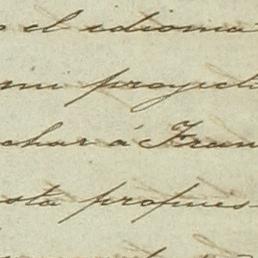 el idioma
mi proyect
char á Fran
sta propues-